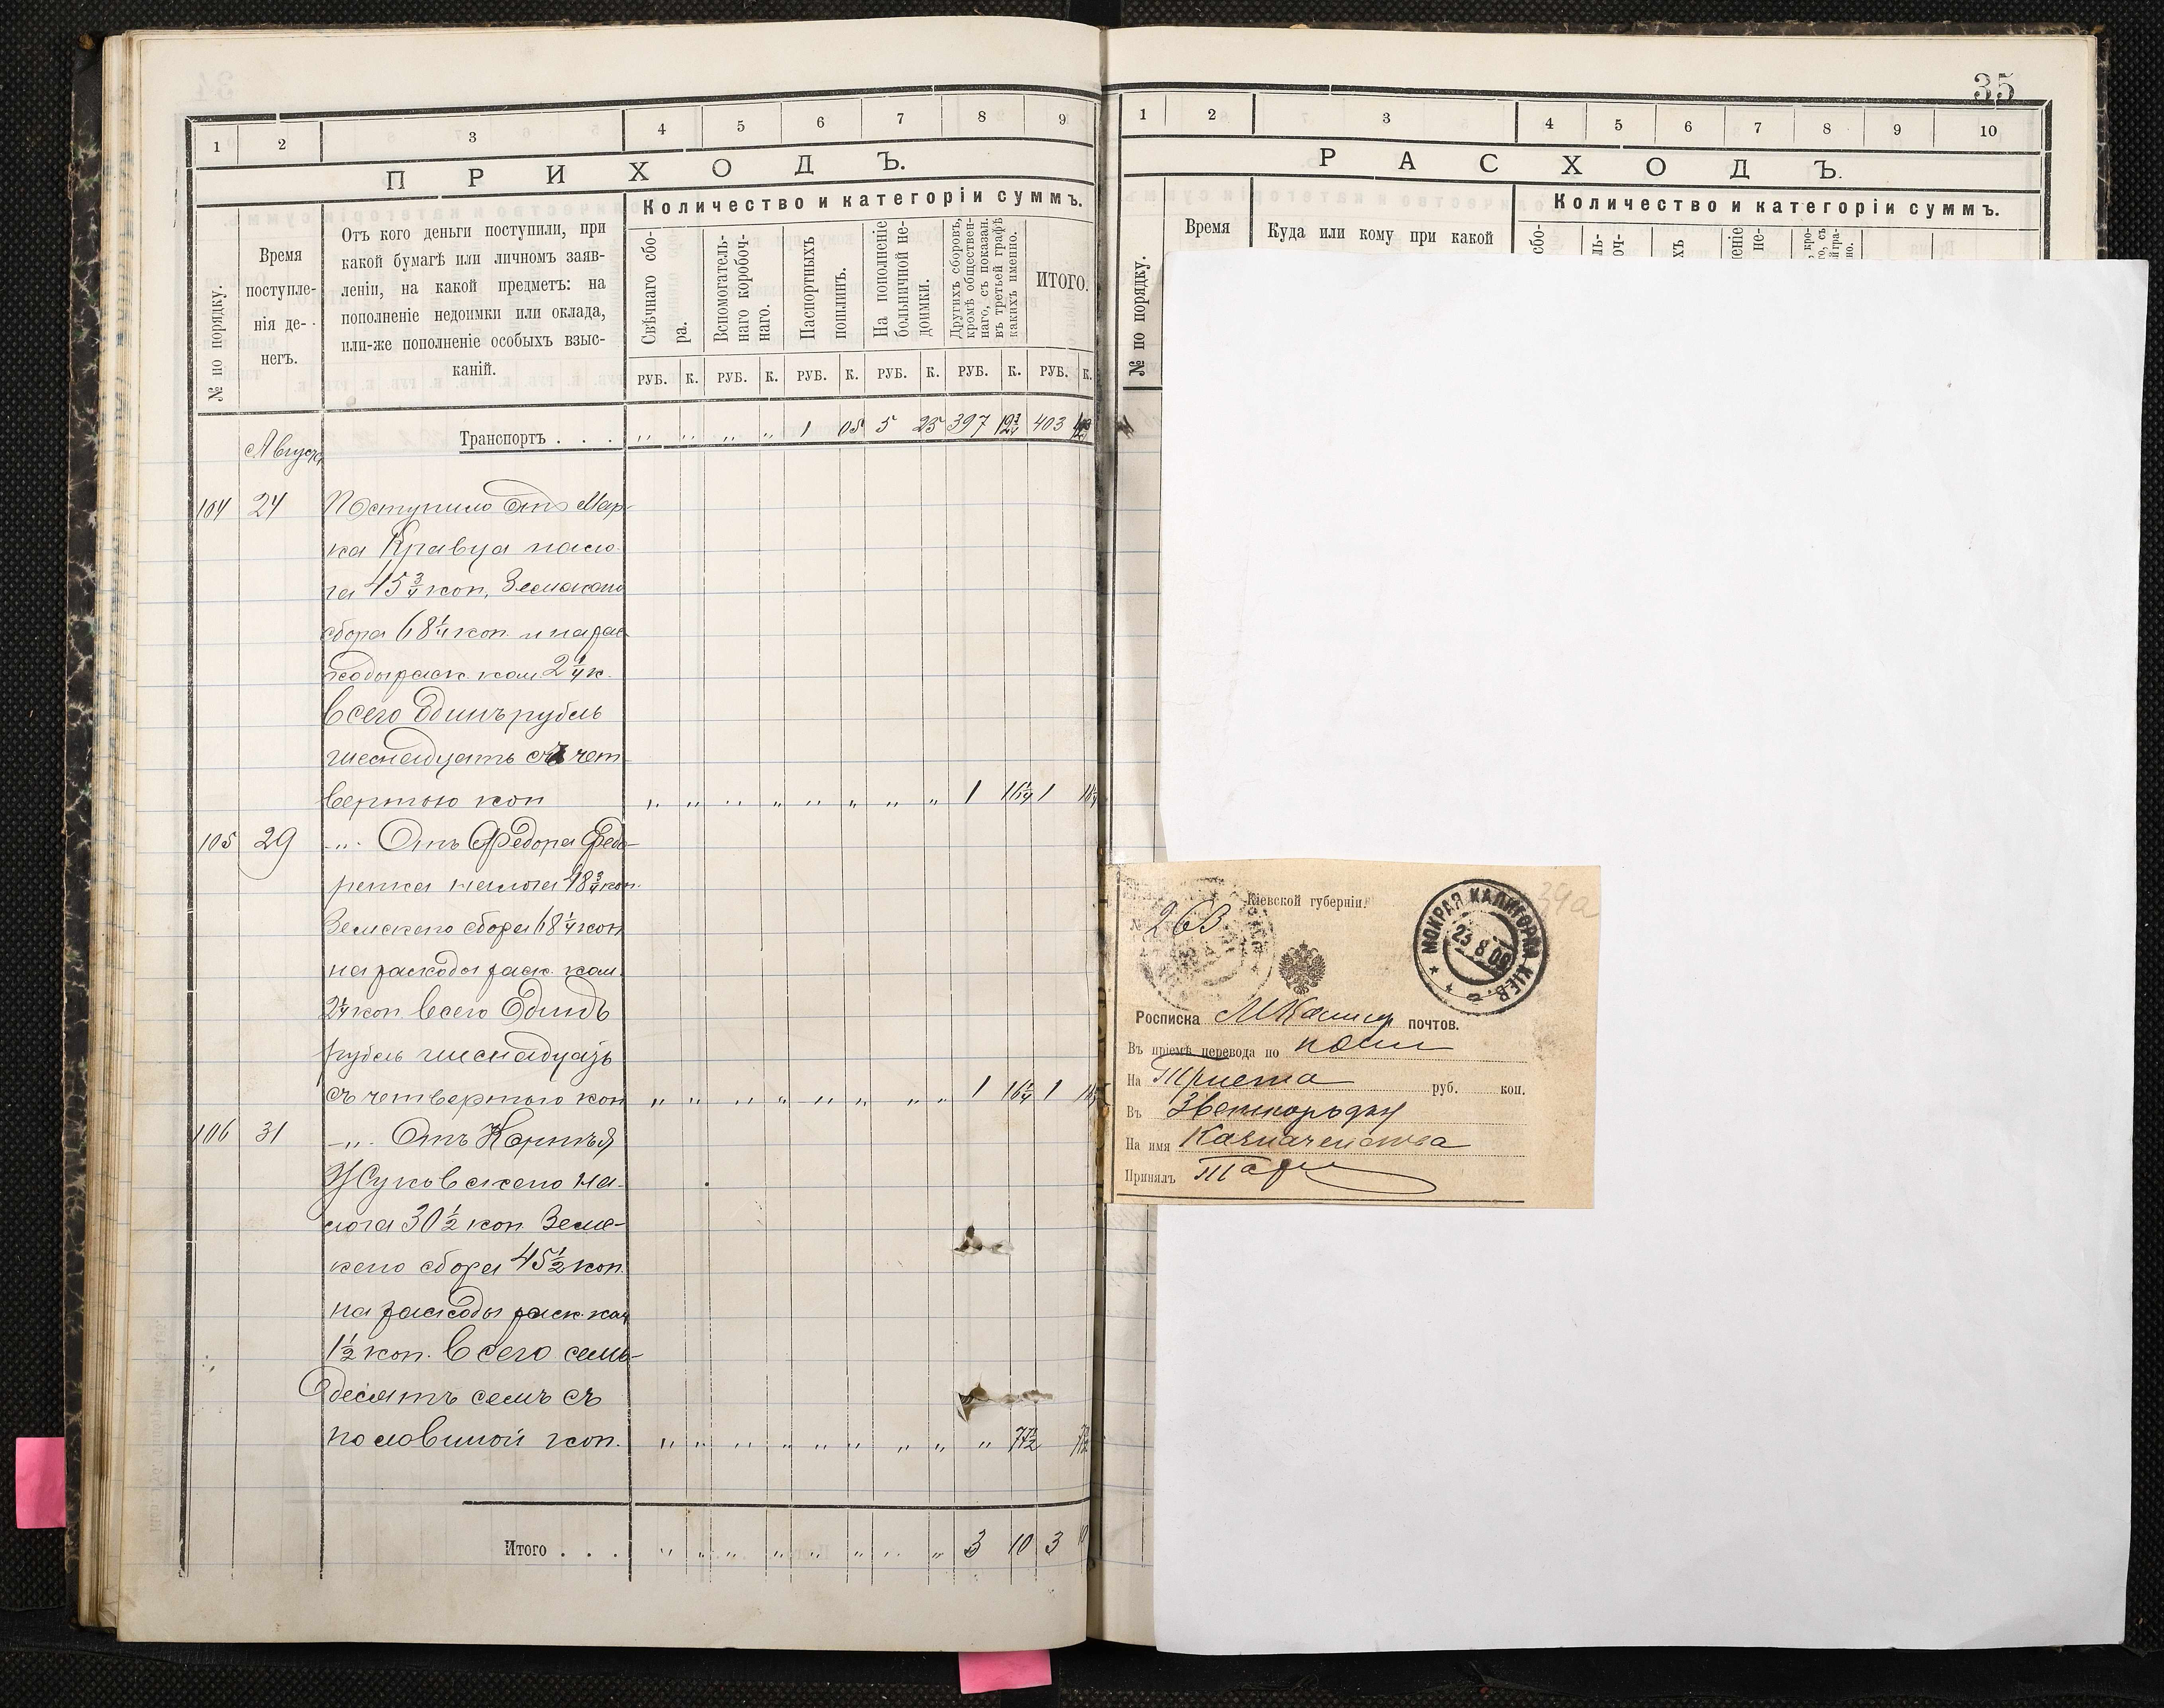 1 2 3 4 5 6 7 8 9
ПРИХОДЪ.
Количество и категоріи суммъ.
№ по порядку.
Время
поступле-
нія де-
негъ.
Отъ кого деньги поступили, при
какой бумагѣ или личномъ заяв-
леніи, на какой предметъ: на
пополненіе недоимки или оклада,
или-же пополненіе особыхъ взыс-
каній.
Свѣчнаго сбо-
ра.
Вспомогатель-
наго коробоч-
наго.
Паспортныхъ
пошлинъ.
На пополненіе
больничной не-
доимки.
Другихъ сборовъ,
кромѣ обществен-
наго, съ показан.
въ третьей графѣ
какихъ именно.
ИТОГО.
РУБ. К. РУБ. К. РУБ. К. РУБ. К. РУБ. К. РУБ. К.
Транспортъ . . . „ „ „ „ 1 05 5 25 397 19 3/4 403
Августа
104 24 Поступило отъ Мар-
ка Кравца нало-
га 45 3/4 коп, Земскаго
сбора 68 1/4 коп. и на рас
ходы раск. ком 2 1/4 к.
всего Одинъ рубль
шеснадцать съ чет
вертою коп „ „ „ „ „ „ „ „ 1 16 1/4 1 16 1/4
105 29 „ Отъ Федора Федо-
ренка налога 48 3/4 коп.
Земскаго сбора 68 1/4 коп
на расходы раск. ком.
2 1/4 коп. всего Одинъ
рубль шеснадцать
съ четвертою коп „ „ „ „ „ „ „ „ 1 16 1/4 1
106 31 „ Отъ Корнѣя
Жуковскаго на-
лога 30 1/2 коп Земс-
каго сбора 45 1/2 коп.
на расходы раск. ком
1 1/2 коп. всего семь-
десятъ семъ съ
половиной коп. „ „ „ „ „ „ „ „ „ 77 1/2 77 1/2
Итого . . . „ „ „ „ „ „ „ „ 3 10 3 10
35
1 2 3 4 5 6 7 8 9 10
РАСХОДЪ.
Количество и категоріи суммъ.
№ по порядку.
Время
Куда или кому при какой
34а
Кіевской губерніи.
№ 263
МОКРАЯ КАЛИГОРКА КІЕВ.
23 8 09
Росписка М Калиг почтов.
Въ пріемѣ перевода по почт
На Триста руб. коп.
Въ Звенигородку
На имя Казначейства
Принялъ